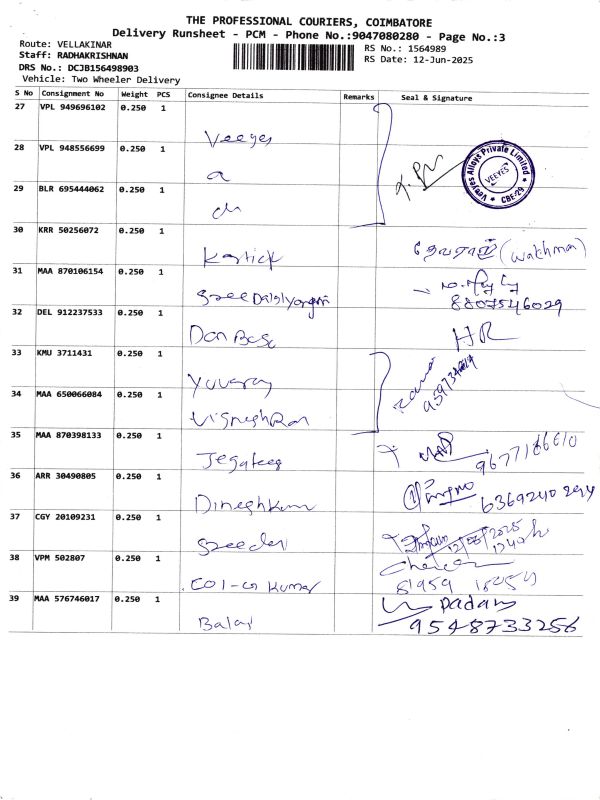 THE PROFESSIONAL COURIERS, COIMBATORE
Delivery Runsheet - PCM - Phone No.:9047080280 - Page No.:3
Route: VELLAKINAR
RS No.: 1564989
Staff: RADHAKRISHNAN
RS Date: 12-Jun-2025
DRS No.: DCJB156498903
Vehicle: Two Wheeler Delivery
S No Consignment No Weight PCS Consignee Details Remarks Seal & Signature
27 VPL 949696102 0.250 1
Veeyes
28 VPL 948556699 0.250 1
Veeyes Alloys Private Limited
VEEYES
CBE-29
29 BLR 695444062 0.250 1
30 KRR 50256072 0.250 1
Kartick
தேவராஜ் (watchman)
31 MAA 870106154 0.250 1
8807546029
32 DEL 912237533 0.250 1
Don Bosc
HR
33 KMU 3711431 0.250 1
Yuvaraj
34 MAA 650066084 0.250 1
VigneshRan
35 MAA 870398133 0.250 1
Jegateeg
36 ARR 30490805 0.250 1
Dineshkum
37 CGY 20109231 0.250 1
Sreedev
12/06/2025
1240h
38 VPM 502807 0.250 1
Col-G Kumar
39 MAA 576746017 0.250 1
Balaj
Padam
9548733256